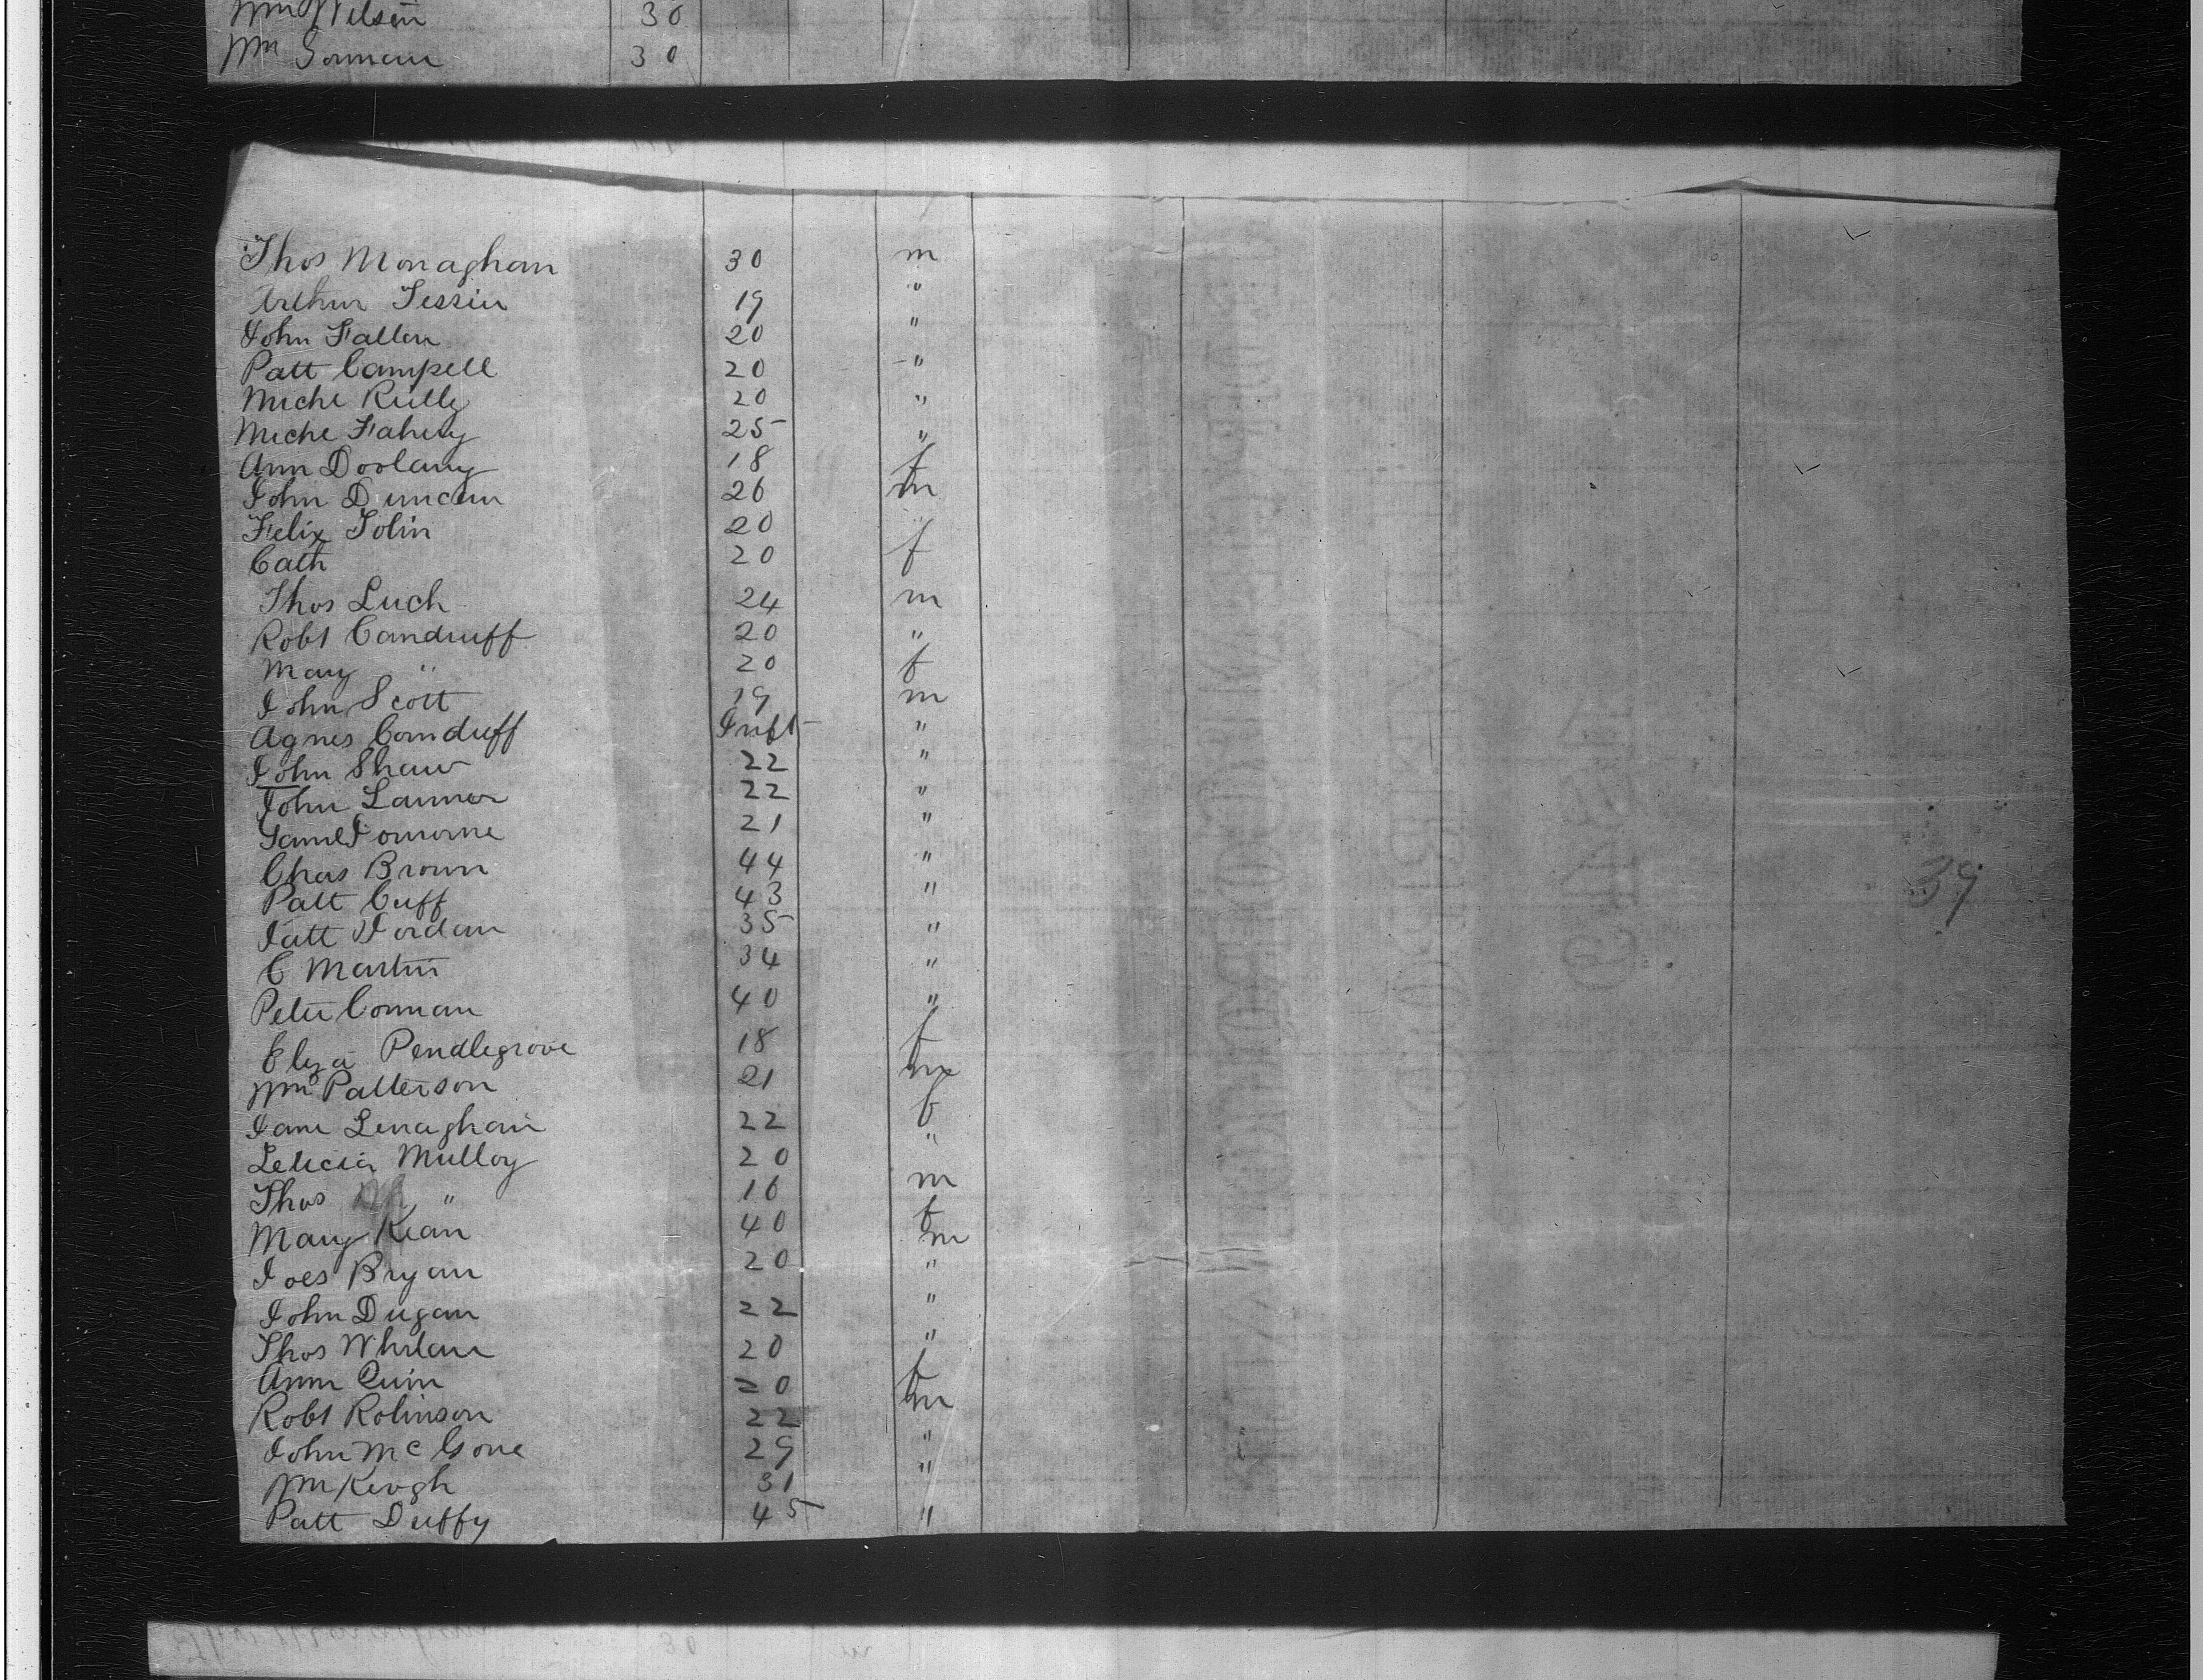 Wm Wilson 30
Wm Gorman 30
Thos Monaghan 30 m
Arthur Tessin 19 "
John Fallon 20 "
Patt Campell 20 "
Miche Reilly 20 "
Miche Fahey 25 "
Ann Doolany 18 f
John Duncan 26 m
Felix Tolin 20 "
Cath 20 f
Thos Luch 24 m
Robt Canduff 20 "
Mary " 20 f
John Scott 19 m
Agnes Conduff Inft "
John Shaw 22 "
John Lanner 22 "
Saml 21 "
Chas Brown 44 "
Patt Cuff 43 "
Patt Jordan 35 "
C Martin 34 "
Peter Connan 40 "
39
Eliza Pendlegrove 18 f
Wm Patterson 21 m
Jane Lenaghan 22 f
Leticia Mulloy 20 "
Thos " 16 m
Mary Kean 40 f
Joes Bryan 20 m "
John Dugan 22 "
Thos Whelan 20 "
Ann Quin 20 f
Robt Robinson 22 m
John McGone 29 "
Wm Keogh 31 "
Patt Duffy 45 "